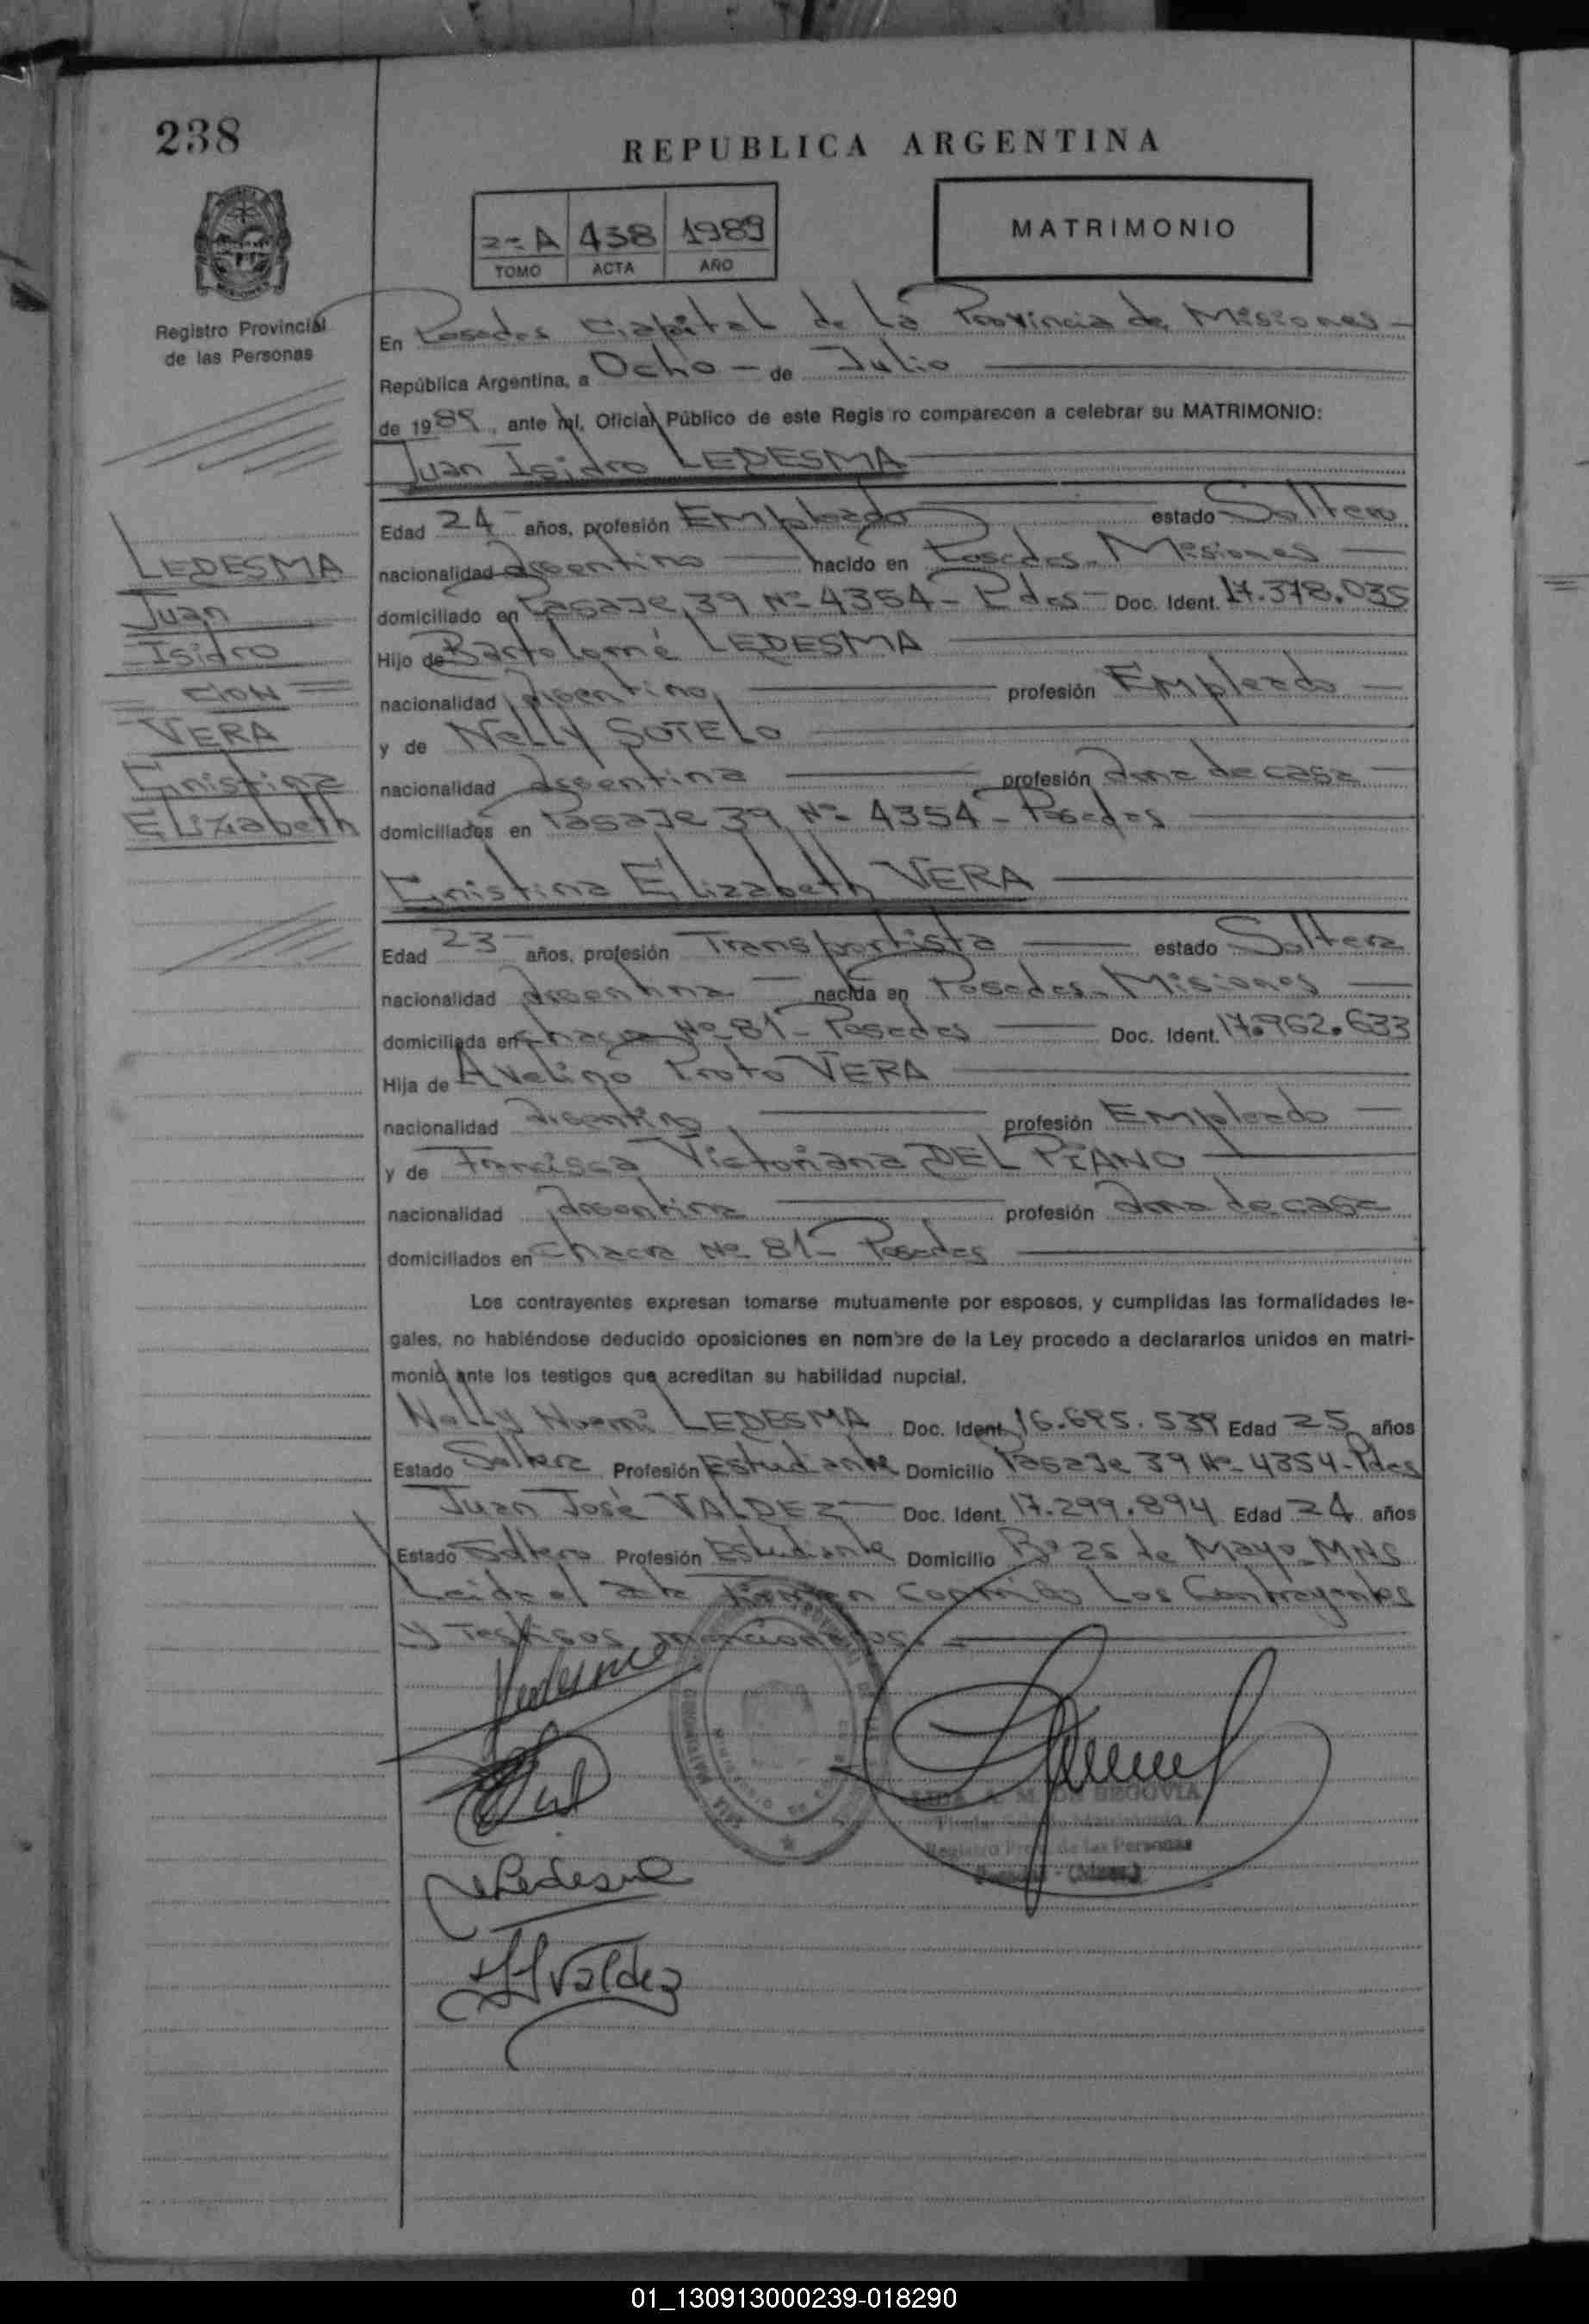 238
REPUBLICA ARGENTINA
2º A 438 1989
TOMO ACTA AÑO
MATRIMONIO
Registro Provincial
de las Personas
En Posadas Capital de La Provincia de Misiones
República Argentina, a Ocho de Julio
de 1989, ante mi, Oficial Público de este Regis ro comparecen a celebrar su MATRIMONIO:
Juan Isidro LEDESMA
Edad 24 años, profesión Empleado estado Soltero
nacionalidad argentino nacido en Posadas - Misiones
domiciliado en Pasaje 39 Nº 4354 - Pdas Doc. Ident. 17.378.035
Hijo de Bartolomé LEDESMA
nacionalidad argentino profesión Empleado
y de Nelly SOTELO
nacionalidad argentina profesión ama de casa
domiciliados en Pasaje 39 Nº 4354 - Posadas
LEDESMA
Juan
Isidro
CON
VERA
Cristina
Elizabeth
Cristina Elizabeth VERA
Edad 23 años, profesión Transportista estado Soltera
nacionalidad argentina nacida en Posadas - Misiones
domiciliada en Chacra Nº 81 - Posadas Doc. Ident. 17.962.633
Hija de Avelino Proto VERA
nacionalidad argentino profesión Empleado
y de Francisca Victoriana DEL PIANO
nacionalidad argentina profesión ama de casa
domiciliados en Chacra Nº 81 - Posadas
Los contrayentes expresan tomarse mutuamente por esposos, y cumplidas las formalidades le-
gales, no habiéndose deducido oposiciones en nombre de la Ley procedo a declararlos unidos en matri-
monio ante los testigos que acreditan su habilidad nupcial.
Nelly Noemi LEDESMA Doc. Ident. 16.695.539 Edad 25 años
Estado Soltera Profesión Estudiante Domicilio Pasaje 39 Nº 4354 - Pdas
Juan José VALDEZ Doc. Ident. 17.299.894 Edad 24 años
Estado Soltero Profesión Estudiante Domicilio Bº 25 de Mayo - MNS
Leida el acta firman conmigo Los Contrayentes
y Testigos mencionados.
Ledesma
Ledesma
Valdez
A. M. DE SEGOVIA
Registro Prov. de las Personas
01_130913000239-018290